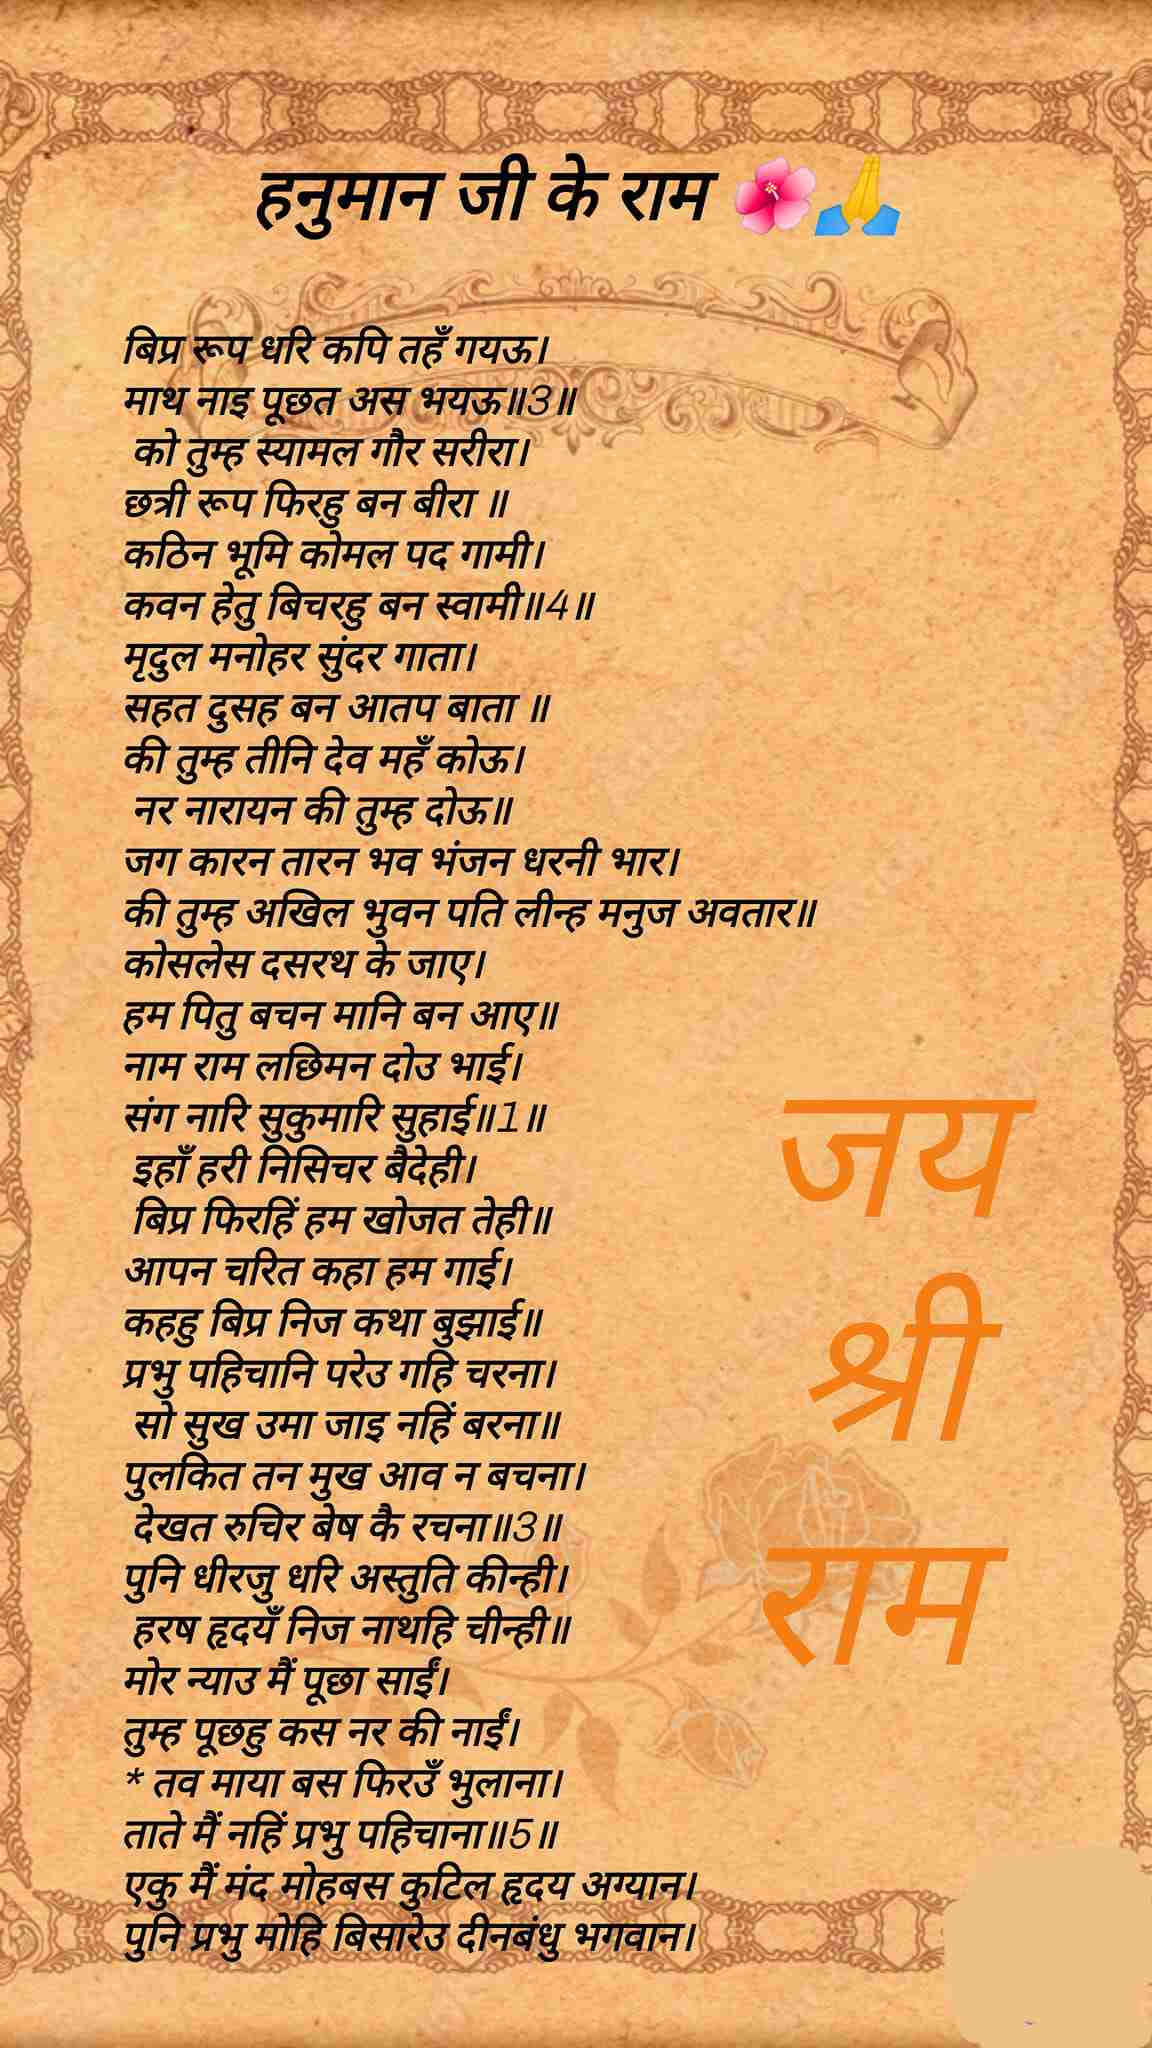 हनुमान जी के राम 🌺🙏
बिप्र रूप धरि कपि तहँ गयऊ।
माथ नाइ पूछत अस भयऊ॥3॥
को तुम्ह स्यामल गौर सरीरा।
छत्री रूप फिरहु बन बीरा ॥
कठिन भूमि कोमल पद गामी।
कवन हेतु बिचरहु बन स्वामी॥4॥
मृदुल मनोहर सुंदर गाता।
सहत दुसह बन आतप बाता ॥
की तुम्ह तीनि देव महँ कोऊ।
नर नारायन की तुम्ह दोऊ॥
जग कारन तारन भव भंजन धरनी भार।
की तुम्ह अखिल भुवन पति लीन्ह मनुज अवतार॥
कोसलेस दसरथ के जाए।
हम पितु बचन मानि बन आए॥
नाम राम लछिमन दोउ भाई।
संग नारि सुकुमारि सुहाई॥1॥
इहाँ हरी निसिचर बैदेही।
बिप्र फिरहिं हम खोजत तेही॥
आपन चरित कहा हम गाई।
कहहु बिप्र निज कथा बुझाई॥
प्रभु पहिचानि परेउ गहि चरना।
सो सुख उमा जाइ नहिं बरना॥
पुलकित तन मुख आव न बचना।
देखत रुचिर बेष कै रचना॥3॥
पुनि धीरजु धरि अस्तुति कीन्ही।
हरष हृदयँ निज नाथहि चीन्ही॥
मोर न्याउ मैं पूछा साईं।
तुम्ह पूछहु कस नर की नाईं।
* तव माया बस फिरउँ भुलाना।
ताते मैं नहिं प्रभु पहिचाना॥5॥
एकु मैं मंद मोहबस कुटिल हृदय अग्यान।
पुनि प्रभु मोहि बिसारेउ दीनबंधु भगवान।
जय
श्री
राम